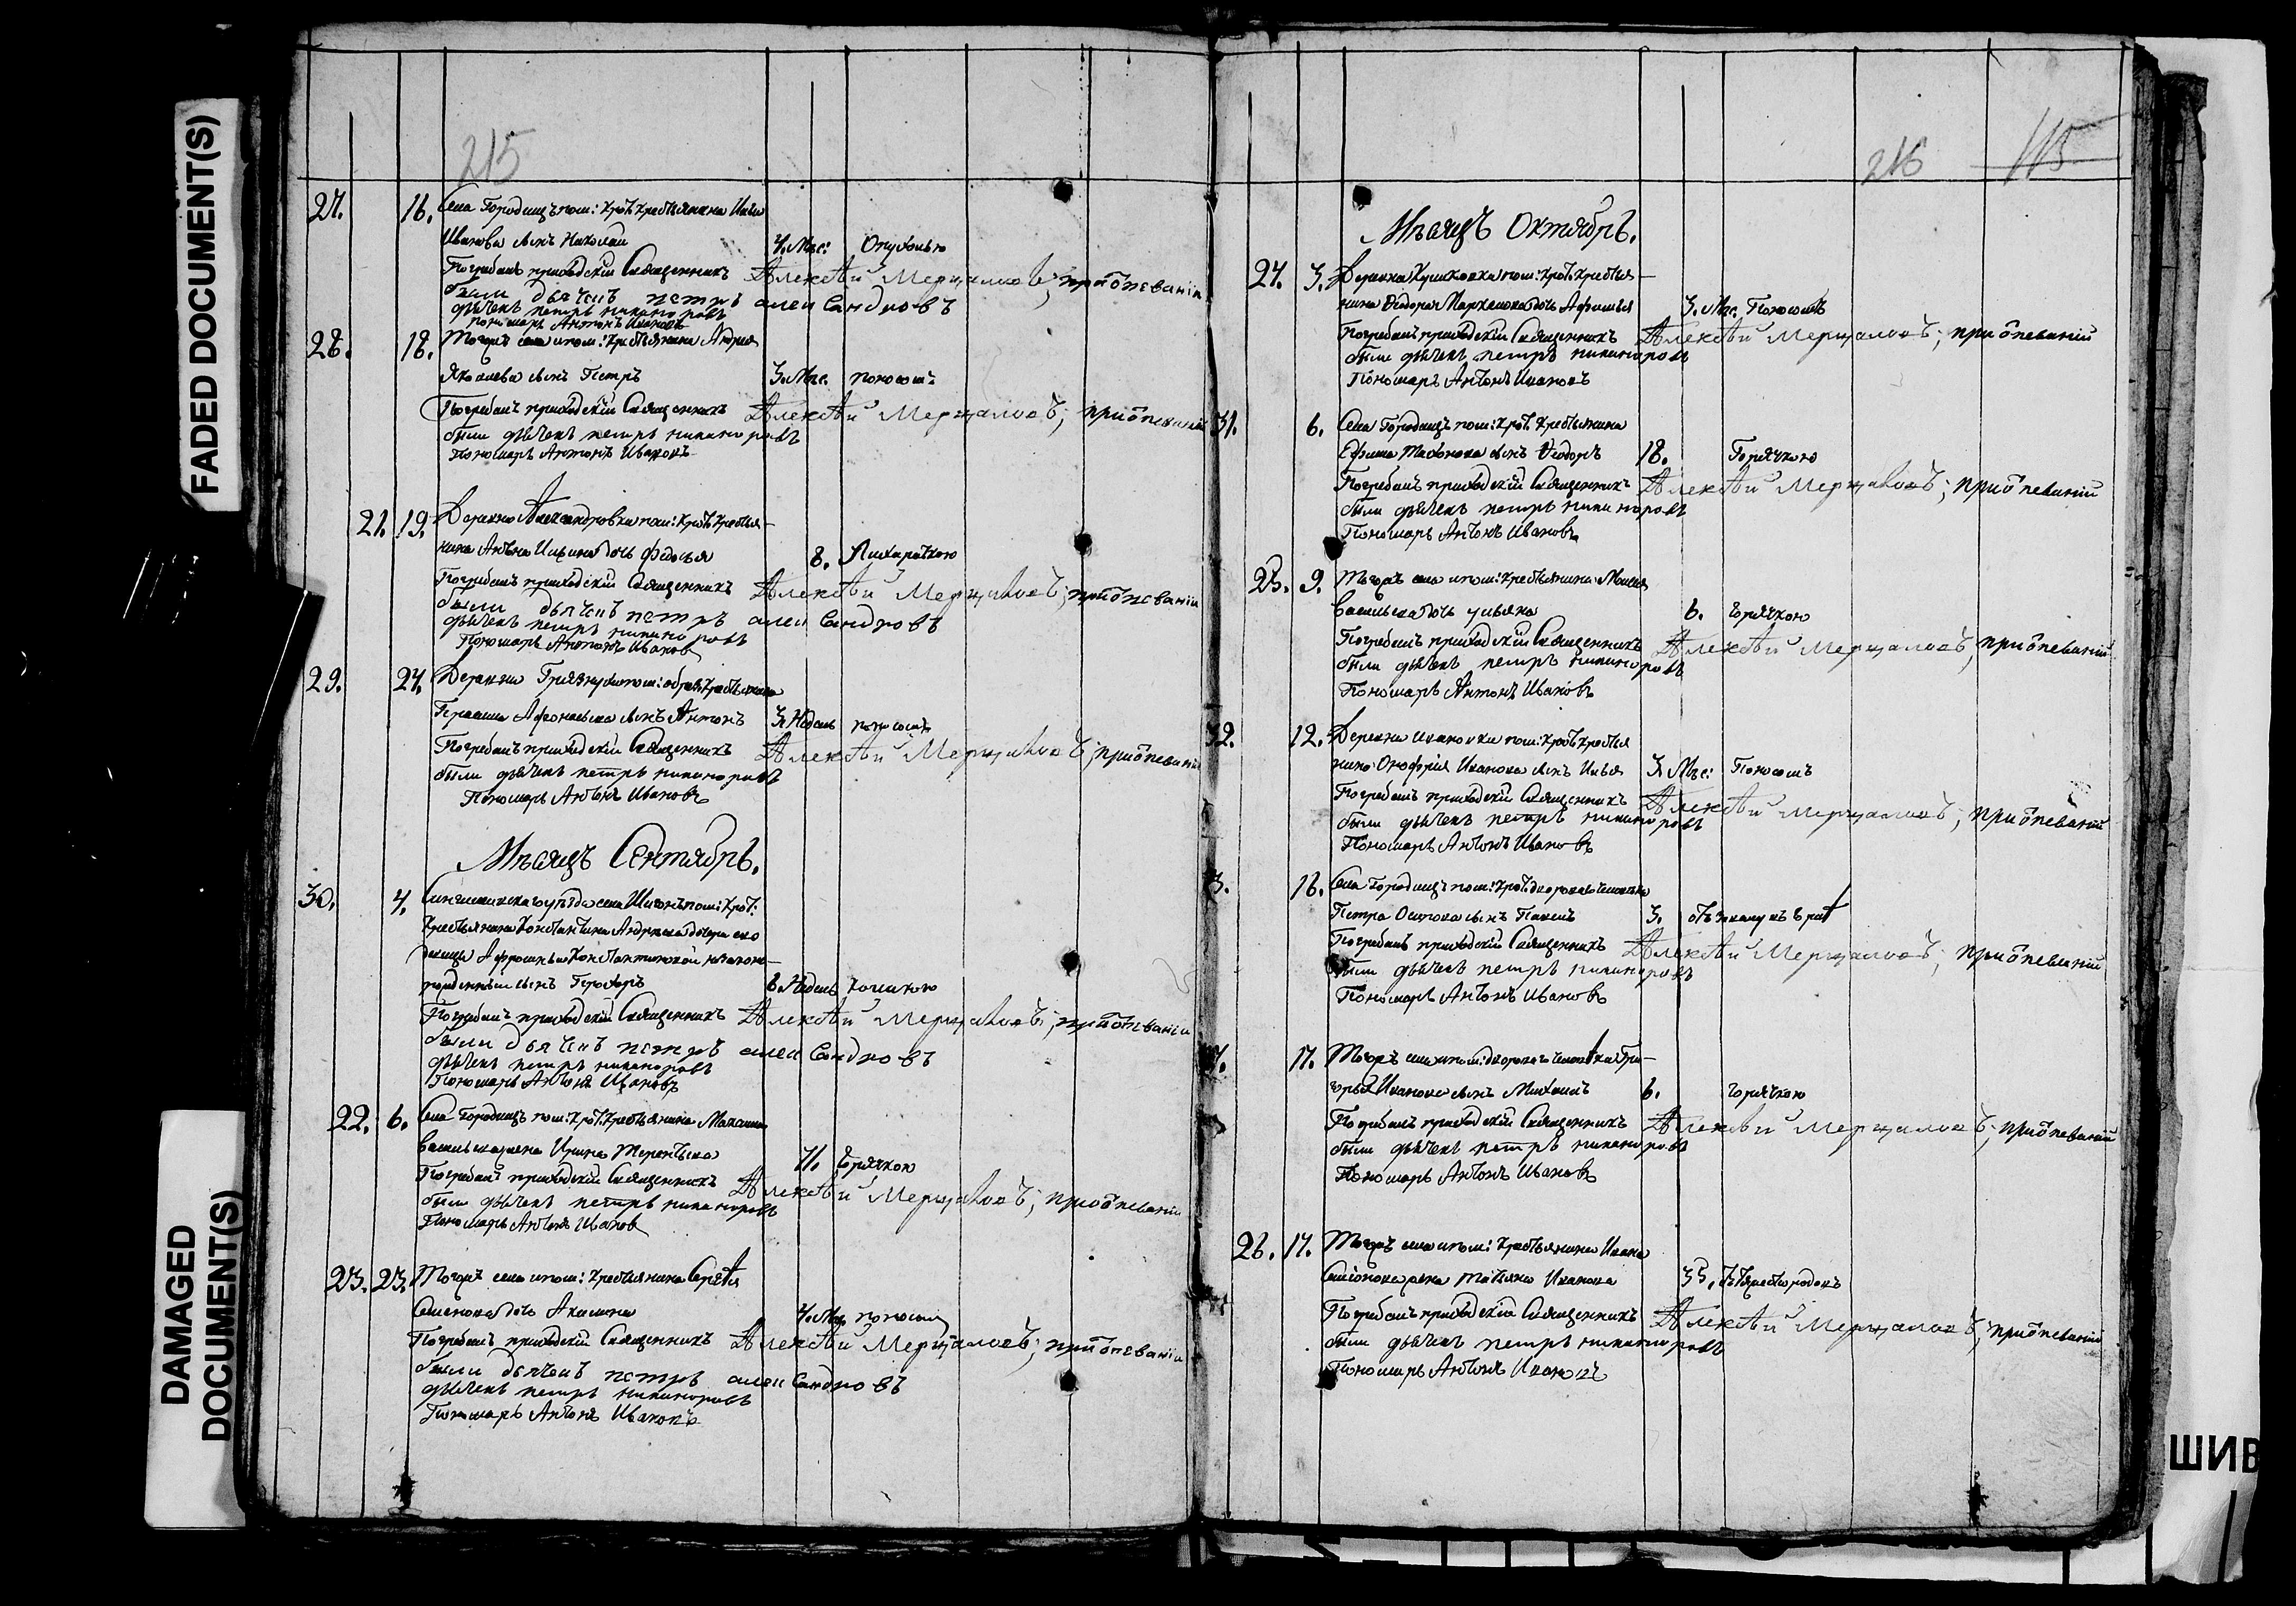 FADED DOCUMENT(S)
DAMAGED
DOCUMENT(S)
215
27. 16. Села Городищъ пом: Крот: крестьянина Ильи
Иванова сынъ Николай 4. Мѣс: Опухолью
Погребалъ приходскій Священникъ Алексѣй Мерцаловъ; при опеваніи
были дьячекъ петръ александровъ
дьячекъ петръ никаноровъ
пономарь Антонъ Ивановъ
28. 18. Тогожъ села и пом: крестьянина Андрея
Яковлева сынъ Петръ 3. Мѣс. поносомъ
Погребалъ приходскій Священникъ Алексѣй Мерцаловъ; при опеваніи
были дьячекъ петръ никаноровъ
Пономарь Антонъ Ивановъ
21. 19. Деревни Александровки пом: Крот: крестья-
нина Ильина дочь Федосья 8. Лихораткою
Погребалъ приходскій Священникъ Алексѣй Мерцаловъ; при опеваніи
были дьячекъ петръ александровъ
дьячекъ петръ никаноровъ
Пономарь Антонъ Ивановъ
29. 24. Деревни пом: крестьянина
Герасима Афонасьева сынъ Антонъ 3. Недель поносомъ
Погребалъ приходскій Священникъ Алексѣй Мерцаловъ; при опеваніи
были дьячекъ петръ никаноровъ
Пономарь Антонъ Ивановъ
Мѣсяцъ Сентябрь.
30. 4. уѣзда села пом: Крот:
крестьянина Константина Андреева дочери его
девицы Афросиньи Константиновой незаконно-
рожденный сынъ 6. Недель
Погребалъ приходскій Священникъ Алексѣй Мерцаловъ; при опеваніи
были дьячекъ петръ александровъ
дьячекъ петръ никаноровъ
Пономарь Антонъ Ивановъ
22. 6. Села Городищъ пом: Крот: крестьянина Максима
Васильева жена Ирина Терентьева 71. горячкою
Погребалъ приходскій Священникъ Алексѣй Мерцаловъ; при опеваніи
были дьячекъ петръ никаноровъ
Пономарь Антонъ Ивановъ
23. 23. Тогожъ села и пом: крестьянина Сергѣя
Семенова дочь Акилина 4. Мѣс. поносомъ
Погребалъ приходскій Священникъ Алексѣй Мерцаловъ; при опеваніи
были дьячекъ петръ александровъ
дьячекъ петръ никаноровъ
Пономарь Антонъ Ивановъ
216 115
Мѣсяцъ Октябрь.
24. 3. Деревни пом: Крот: крестья-
нина Ѳедора дочь Афимья 3. Мѣс. Поносомъ
Погребалъ приходскій Священникъ Алексѣй Мерцаловъ; при опеваніи
были дьячекъ петръ никаноровъ
Пономарь Антонъ Ивановъ
31. 6. Села Городищъ пом: Крот: крестьянина
Ефима сынъ Ѳедоръ 18. Горячкою
Погребалъ приходскій Священникъ Алексѣй Мерцаловъ; при опеваніи
были дьячекъ петръ никаноровъ
Пономарь Антонъ Ивановъ
25. 9. Тогожъ села и пом: крестьянина
Васильева дочь ульяна 6. горячкою
Погребалъ приходскій Священникъ Алексѣй Мерцаловъ; при опеваніи
были дьячекъ петръ никаноровъ
Пономарь Антонъ Ивановъ
32. 12. Деревни Ивановки пом: Крот: крестья
нина Онофрія Иванова сынъ Илья 3. Мѣс: Поносомъ
Погребалъ приходскій Священникъ Алексѣй Мерцаловъ; при опеваніи
были дьячекъ петръ никаноровъ
Пономарь Антонъ Ивановъ
3. 16. Села Городищъ пом: Крот: двороваго человѣка
Петра Осипова сынъ Павелъ 3.
Погребалъ приходскій Священникъ Алексѣй Мерцаловъ; при опеваніи
были дьячекъ петръ никаноровъ
Пономарь Антонъ Ивановъ
17. Тогожъ села и пом: двороваго человѣка Гри-
горья Иванова сынъ Михаилъ 6. горячкою
Погребалъ приходскій Священникъ Алексѣй Мерцаловъ; при опеваніи
были дьячекъ петръ никаноровъ
Пономарь Антонъ Ивановъ
26. 17. Тогожъ села и пом: крестьянина Ивана
Семіонова жена Татьяна Иванова 35.
Погребалъ приходскій Священникъ Алексѣй Мерцаловъ; при опеваніи
были дьячекъ петръ никаноровъ
Пономарь Антонъ Ивановъ
ШИВ